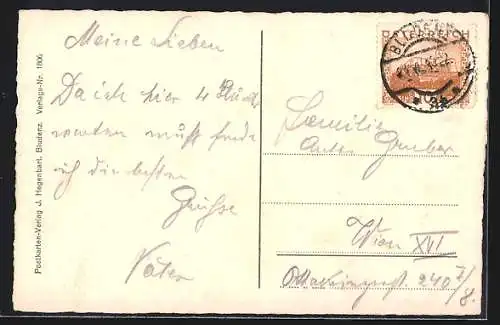 Meine Lieben
Da ich hier 4 Stund
warten muß sende
ich die besten
Grüße
Vater
Postkarten-Verlag J. Hegenbart, Bludenz. Verlags-Nr. 1800
ÖSTERREICH
Familie
Anton Gruber
Wien XVI
Ottakringerst. 240 7/8.